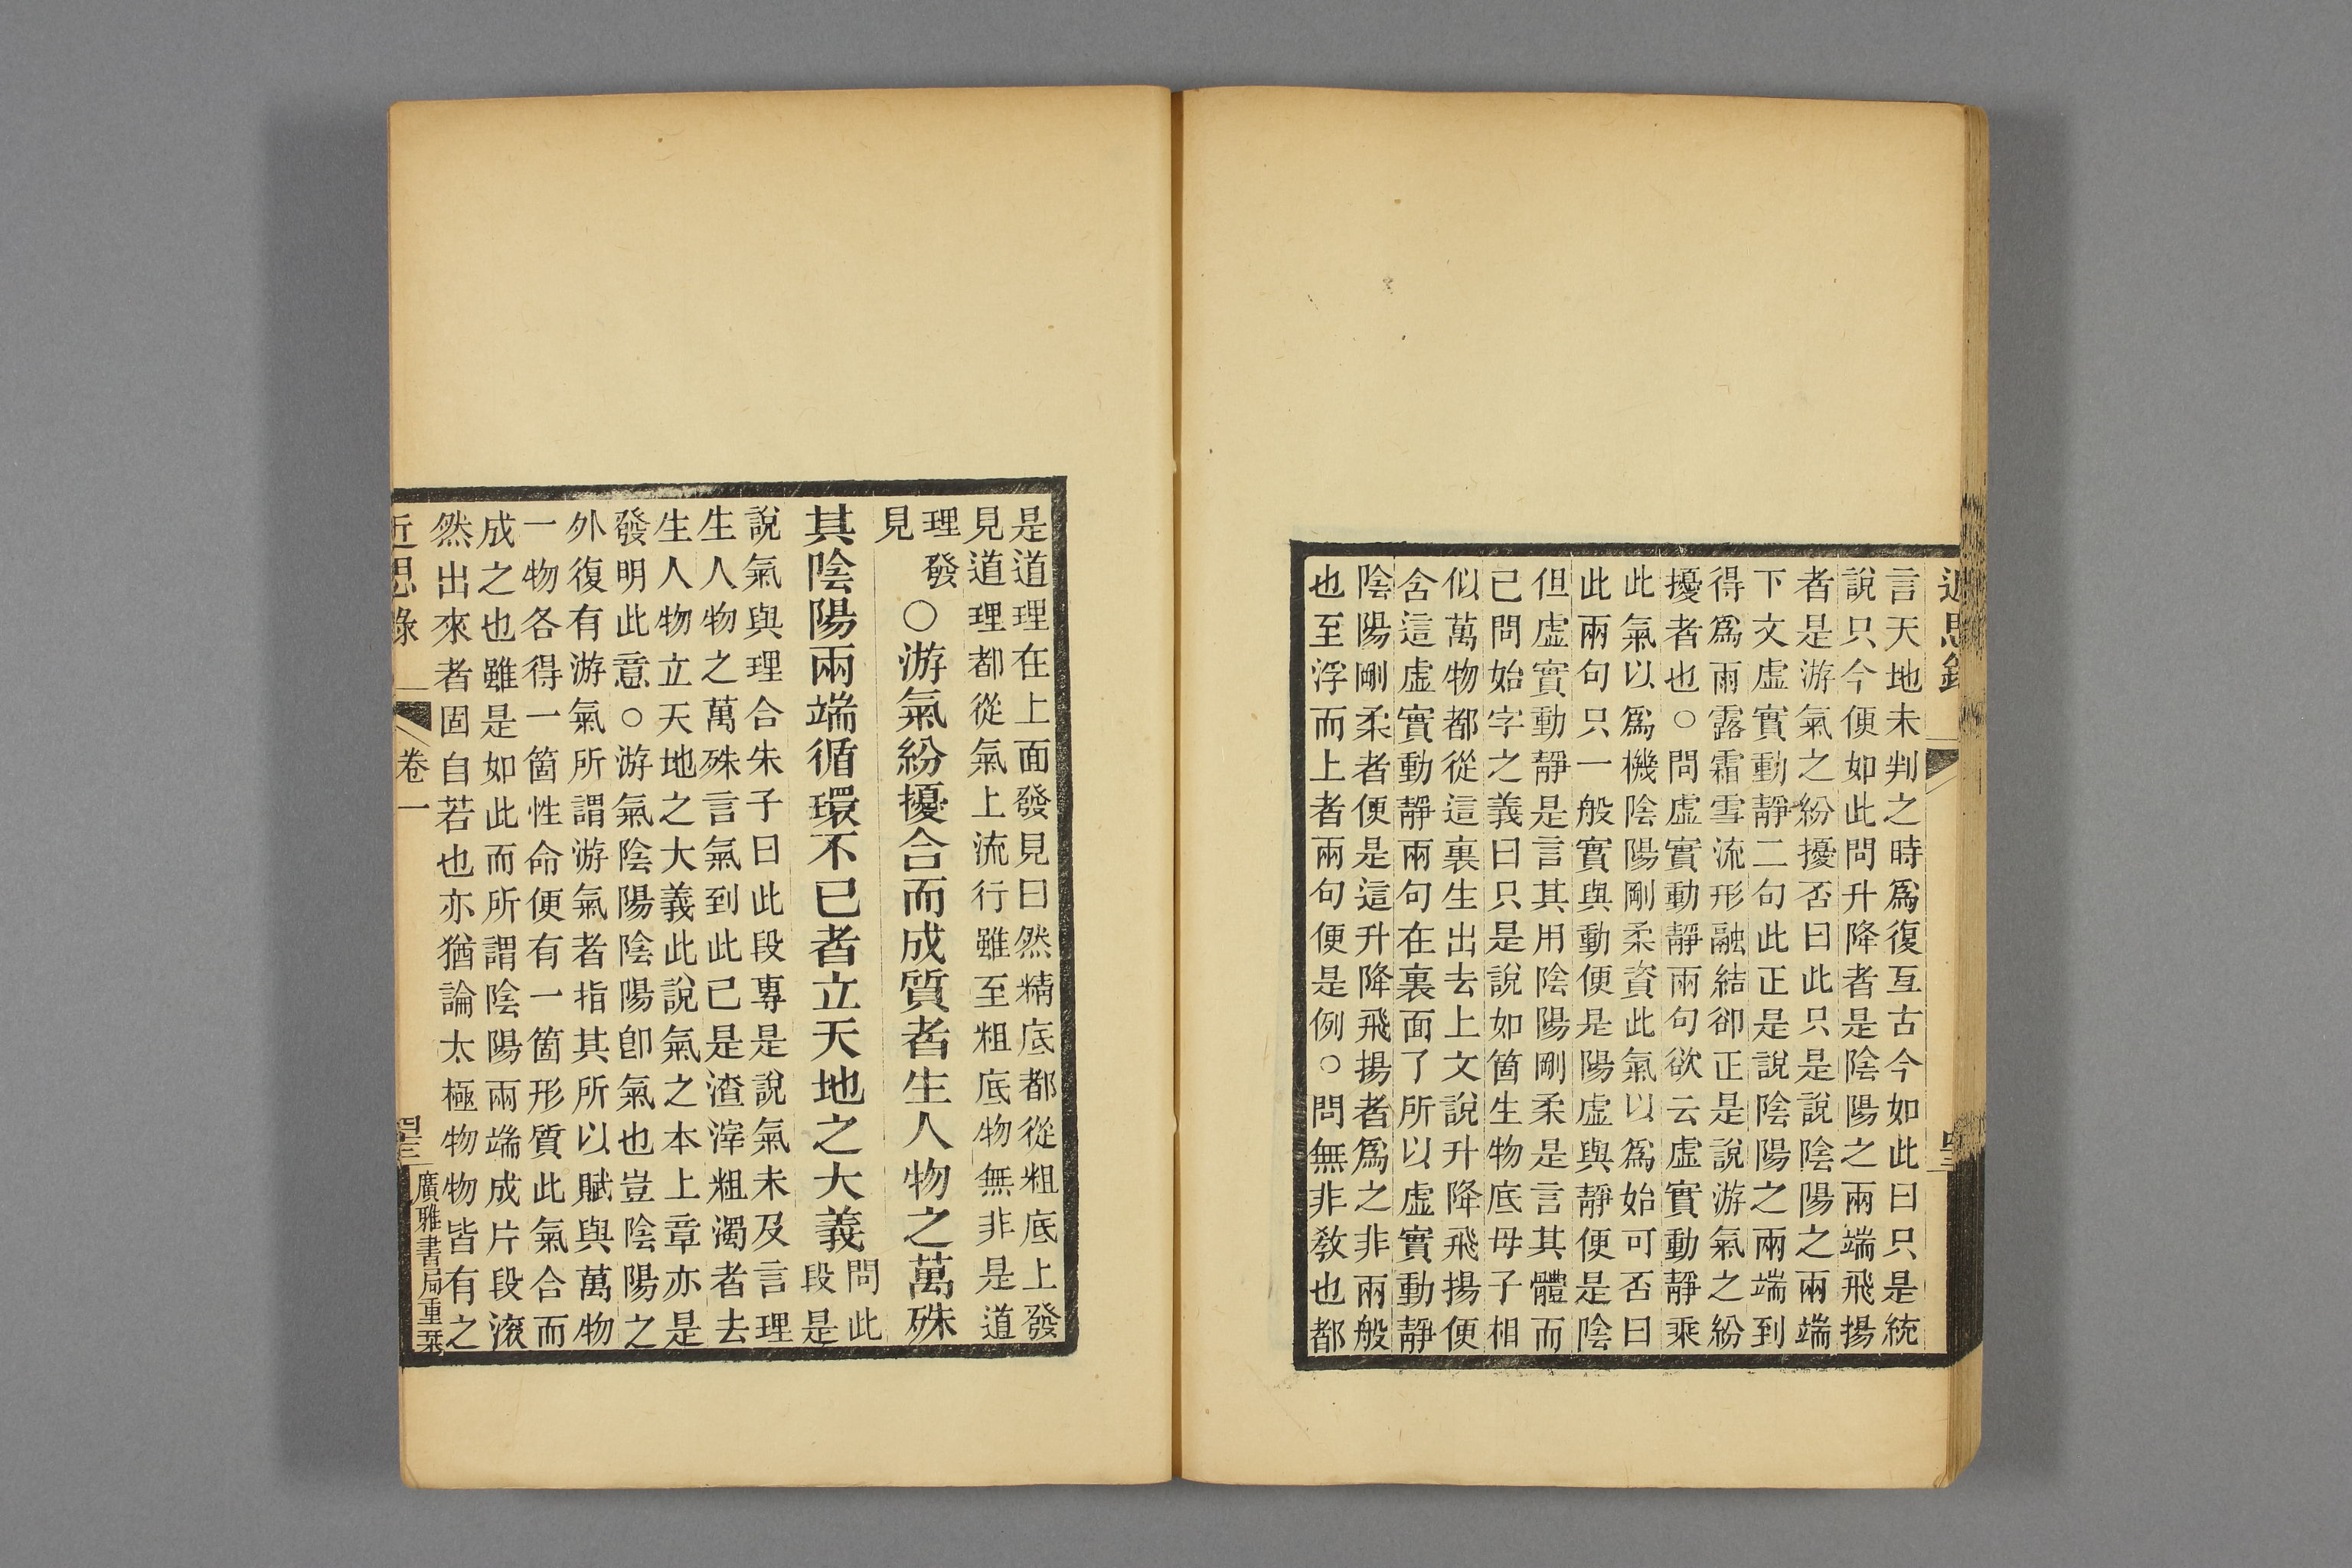 近思錄
言天地未判之時爲復亙古今如此曰只是統
說只今便如此問升降者是陰陽之兩端飛揚
者是游氣之紛擾否曰此只是說陰陽之兩端
下文虛實動靜二句此正是說陰陽之兩端到
得爲雨露霜雪流形融結卻正是說游氣之紛
擾者也○問虛實動靜兩句欲云虛實動靜乘
此氣以爲機陰陽剛柔資此氣以爲始可否曰
此兩句只一般實與動便是陽虛與靜便是陰
但虛實動靜是言其用陰陽剛柔是言其體而
已問始字之義曰只是說如箇生物底母子相
似萬物都從這裏生出去上文說升降飛揚便
含這虛實動靜兩句在裏面了所以虛實動靜
陰陽剛柔者便是這升降飛揚者爲之非兩般
也至浮而上者兩句便是例○問無非敎也都
是道理在上面發見曰然精底都從粗底上發
見道理都從氣上流行雖至粗底物無非是道
理發
見
○游氣紛擾合而成質者生人物之萬殊
其陰陽兩端循環不已者立天地之大義
問此
段是
說氣與理合朱子曰此段專是說氣未及言理
生人物之萬殊言氣到此已是渣滓粗濁者去
生人物立天地之大義此說氣之本上章亦是
發明此意○游氣陰陽陰陽卽氣也豈陰陽之
外復有游氣所謂游氣者指其所以賦與萬物
一物各得一箇性命便有一箇形質此氣合而
成之也雖是如此而所謂陰陽兩端成片段滾
然出來者固自若也亦猶論太極物物皆有之
近思錄
卷一
四三
廣雅書局重栞